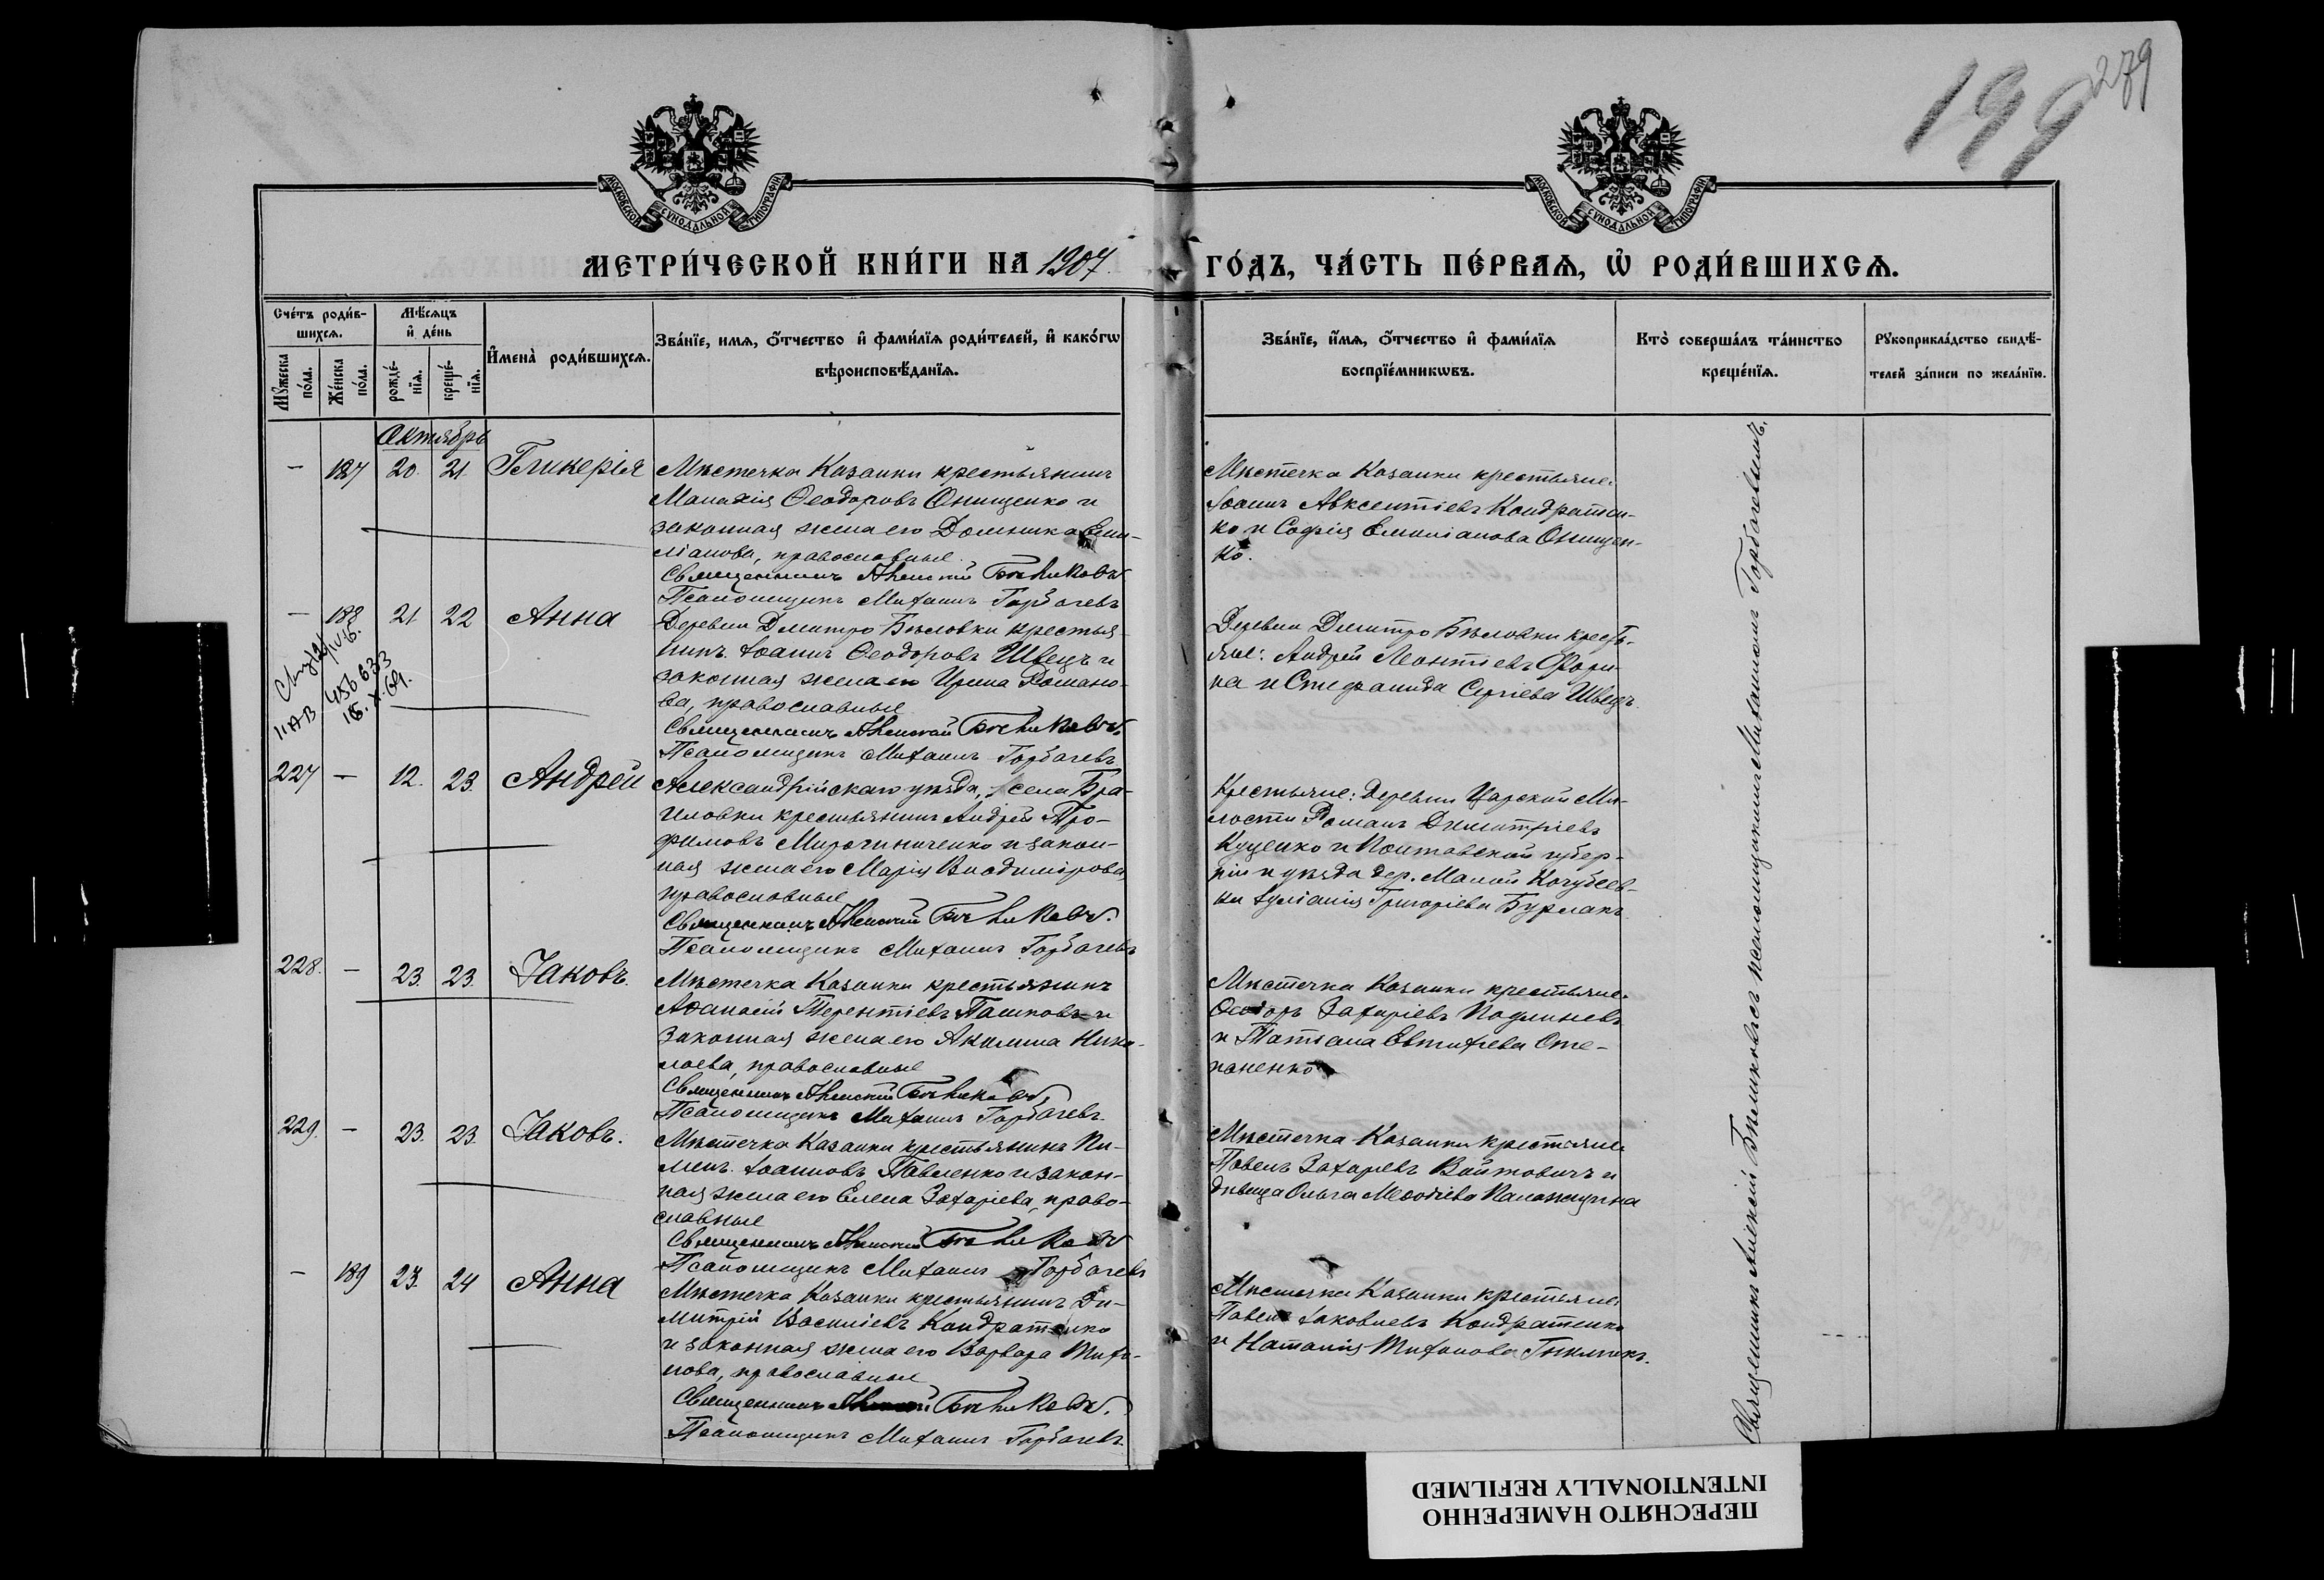 199
279
МОСКОВСКОЙ СУНОДАЛЬНОЙ ТИПОГРАФІИ
МОСКОВСКОЙ СУНОДАЛЬНОЙ ТИПОГРАФІИ
МЕТРИ́ЧЕСКОЙ КНИ́ГИ НА 1907
ГО́ДЪ, ЧА́СТЬ ПЕ́РВАѦ, Ѡ҆ РОДИ́ВШИХСѦ.
Сче́тъ роди́в-
шихсѧ.
Мꙋ́жеска по́ла.
Же́нска по́ла.
Мѣ́сѧцъ
и҆ де́нь
рожде́-
нїѧ.
креще́-
нїѧ.
И҆мена̀ роди́вшихсѧ.
Зва́нїе, имѧ, ѻ҆́тчество и҆ фами́лїѧ роди́телей, и҆ како́гѡ
вѣроисповѣ́данїѧ.
Зва́нїе, и҆́мѧ, ѻ҆́тчество и҆ фами́лїѧ
воспрїе́мникѡвъ.
Кто̀ соверша́лъ та́инство
креще́нїѧ.
Рꙋкоприкла́дство свидѣ́-
телей за́писи по жела́нїю.
Октябрь
— 187 20. 21. Гликерія
Мѣстечка Казанки крестьянинъ
Малахія Ѳеодоровъ Онищенко и
законная жена его Домника Еми-
ліанова, православные.
Священникъ Алексій Бѣликовъ
Псаломщикъ Михаилъ Горбачевъ
Мѣстечка Казанки крестьяне:
Іоаннъ Авксентіевъ Кондратен-
ко и Софія Емиліанова Онищен-
ко.
— 188 21 22 Анна
IIАВ 456633
15.X.69.
Деревни Дмитро-Бѣловки крестья-
нинъ Іоаннъ Ѳеодоровъ Швецъ и
законная жена его Ирина Романо-
ва, православные
Священникъ Алексій Бѣликовъ.
Псаломщикъ Михаилъ Горбачевъ
Деревни Дмитро Бѣловки кресть-
яне: Андрей Леонтіевъ
и Стефанида Сергіева Швецъ.
227 — 12. 23. Андрей
Александрійскаго уѣзда, села Бра-
иловки крестьянинъ Андрей Тро-
фимовъ Мирошниченко и закон-
ная жена его Марія Владимірова,
православные
Священникъ Алексій Бѣликовъ.
Псаломщикъ Михаилъ Горбачевъ
Крестьяне: деревни Царской Ми-
лости Романъ Димитріевъ
Куценко и Полтавской губер-
ніи и уѣзда дер. Малой Кочубеев-
ки Іуліанія Григоріева Бурлакъ
228. — 23. 23. Іаковъ.
Мѣстечка Казанки крестьянинъ
Аѳанасій Терентіевъ Пашковъ и
законная жена его Акилина Нико-
лаева, православные
Священникъ Алексій Бѣликовъ,
Псаломщикъ Михаилъ Горбачевъ.
Мѣстечка Казанки крестьяне:
Ѳеодоръ Захаріевъ
и Татіана Евтихіева Сте-
паненко
229. — 23. 23. Іаковъ.
Мѣстечка Казанки крестьянинъ Пи-
менъ Іоанновъ Павленко и закон-
ная жена его Елена Захаріева, право-
славные
Священникъ Алексій Бѣликовъ
Псаломщикъ Михаилъ Горбачевъ
Мѣстечка Казанки крестьяне
Павелъ Захаріевъ Войтовичъ и
дѣвица Ольга Меѳодіева
— 189 23. 24 Анна
Мѣстечка Казанки крестьянинъ Ди-
митрій Василіевъ Кондратенко
и законная жена его Варвара Тихо-
нова, православные
Священникъ Алексій Бѣликовъ.
Псаломщикъ Михаилъ Горбачевъ.
Мѣстечка Казанки крестьяне:
Павелъ Іаковлевъ Кондратенко
и Наталія Тихонова
Священникъ Алексій Бѣликовъ съ псаломщикомъ Михаиломъ Горбачевымъ.
ПЕРЕСНЯТО НАМЕРЕННО
INTENTIONALLY REFILMED